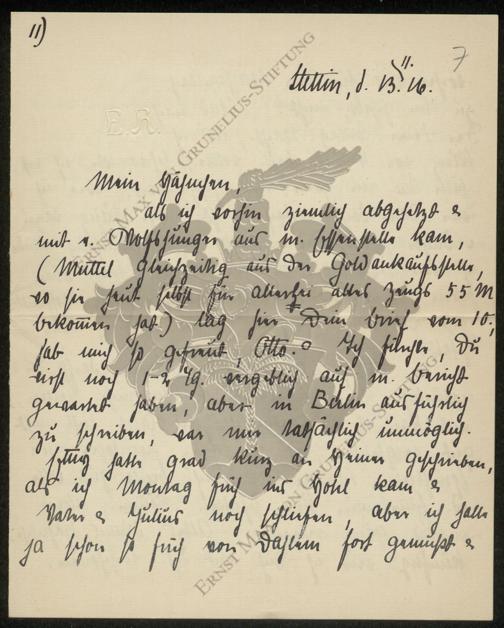 11)
7
Stettin, d. 13. 11. 16.
E. R.
ERNST MAX VON GRUNELIUS-STIFTUNG
Mein Hähnchen,
als ich vorhin ziemlich abgehetzt &
mit e. Wolfshunger aus m. Essenstelle kam,
(Muttel gleichzeitig aus der Goldankaufsstelle,
wo sie heut selbst für allerhei altes Zeugs 55 M
bekommen hat) lag hier Dein Brief vom 10.,
hab mich so gefreut, Otto. Ich fürchte, Du
wirst noch 1-2 Tg. vergeblich auf m. Bericht
gewartet haben, aber in Berlin ausführlich
zu schreiben, war mir tatsächlich unmöglich.
hatte grad kurz an Heiner geschrieben,
als ich Montag früh ins Hotel kam &
Vater & Julius noch schliefen, aber ich hatte
ja schon so früh von Dahlem fort gemußt &
ERNST MAX VON GRUNELIUS-STIFTUNG